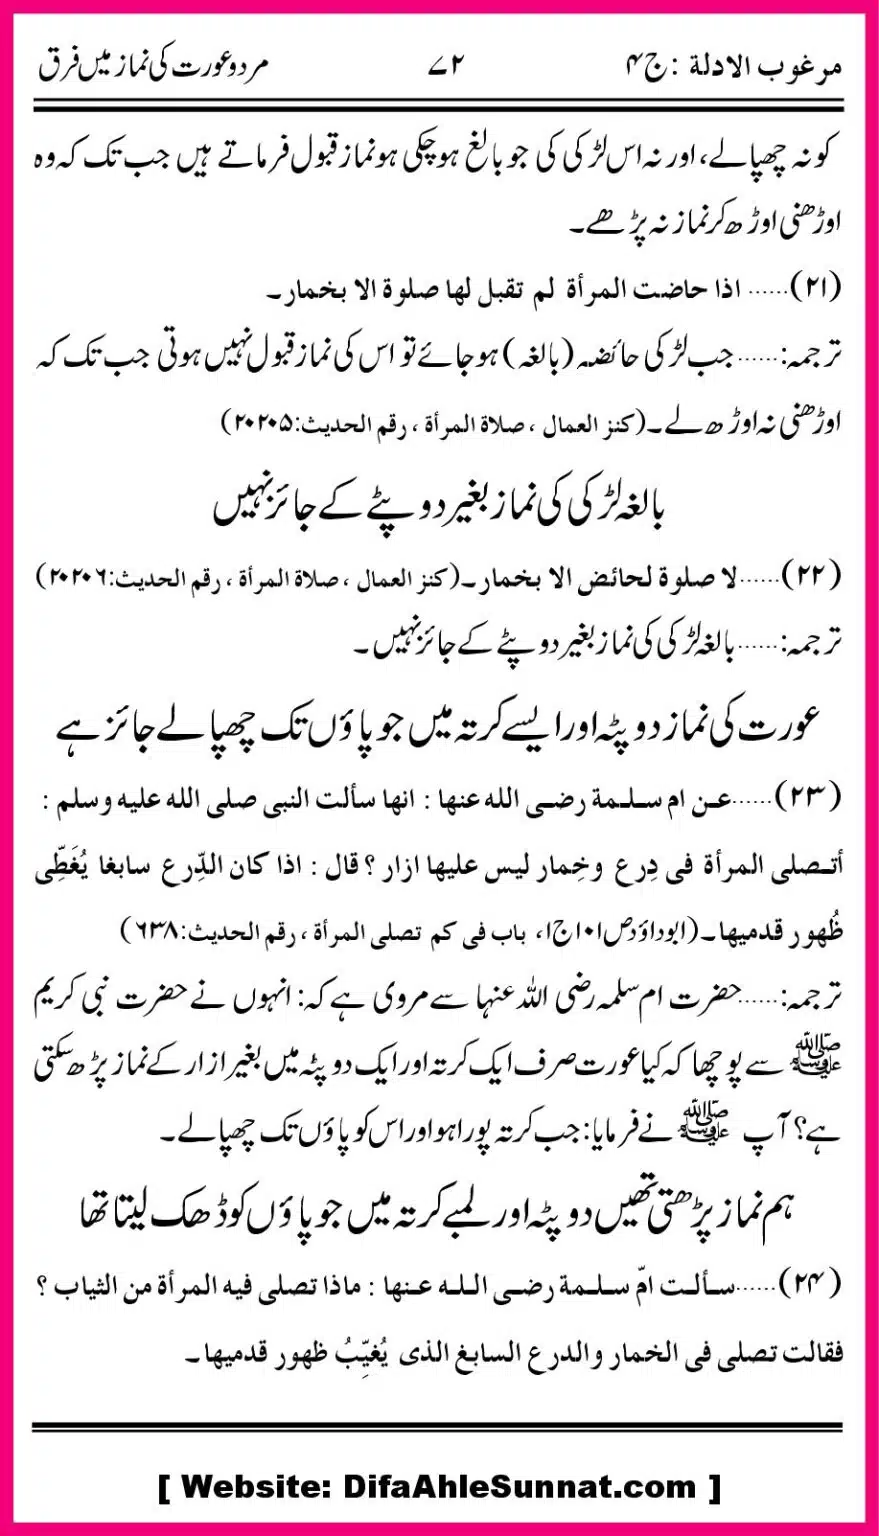 مرغوب الادلۃ : ج ۴ ۷۲ مرد و عورت کی نماز میں فرق
کو نہ چھپالے، اور نہ اس لڑکی کی جو بالغ ہو چکی ہو نماز قبول فرماتے ہیں جب تک کہ وہ
اوڑھنی اوڑھ کر نماز نہ پڑھے۔
(۲۱)...... اذا حاضت المرأة لم تقبل لها صلوة الا بخمار۔
ترجمہ:...... جب لڑکی حائضہ (بالغہ) ہو جائے تو اس کی نماز قبول نہیں ہوتی جب تک کہ
اوڑھنی نہ اوڑھ لے۔(کنز العمال ، صلاة المرأة ، رقم الحدیث:۲۰۲۰۵)
بالغہ لڑکی کی نماز بغیر دوپٹے کے جائز نہیں
(۲۲)......لا صلوة لحائض الا بخمار۔(کنز العمال ، صلاة المرأة ، رقم الحدیث:۲۰۲۰۶)
ترجمہ:...... بالغہ لڑکی کی نماز بغیر دوپٹے کے جائز نہیں۔
عورت کی نماز دوپٹہ اور ایسے کرتہ میں جو پاؤں تک چھپالے جائز ہے
(۲۳)......عن ام سلمة رضی الله عنها : انها سألت النبی صلی الله علیه وسلم :
أتصلی المرأة فی دِرع وخِمار لیس علیها ازار ؟ قال : اذا کان الدِّرع سابغا یُغَطِّی
ظُهور قدمیها۔(ابوداؤد ص ۱۰۱ ج ۱، باب فی کم تصلی المرأة ، رقم الحدیث:۶۳۸)
ترجمہ:...... حضرت ام سلمہ رضی اللہ عنہا سے مروی ہے کہ: انہوں نے حضرت نبی کریم
ﷺ سے پوچھا کہ کیا عورت صرف ایک کرتہ اور ایک دوپٹہ میں بغیر ازار کے نماز پڑھ سکتی
ہے؟ آپ ﷺ نے فرمایا: جب کرتہ پورا ہو اور اس کو پاؤں تک چھپالے۔
ہم نماز پڑھتی تھیں دوپٹہ اور لمبے کرتہ میں جو پاؤں کو ڈھک لیتا تھا
(۲۴)......سألت امّ سلمة رضی الله عنها : ماذا تصلی فیه المرأة من الثیاب ؟
فقالت تصلی فی الخمار والدرع السابغ الذی یُغیِّبُ ظهور قدمیها۔
[ Website: DifaAhleSunnat.com ]